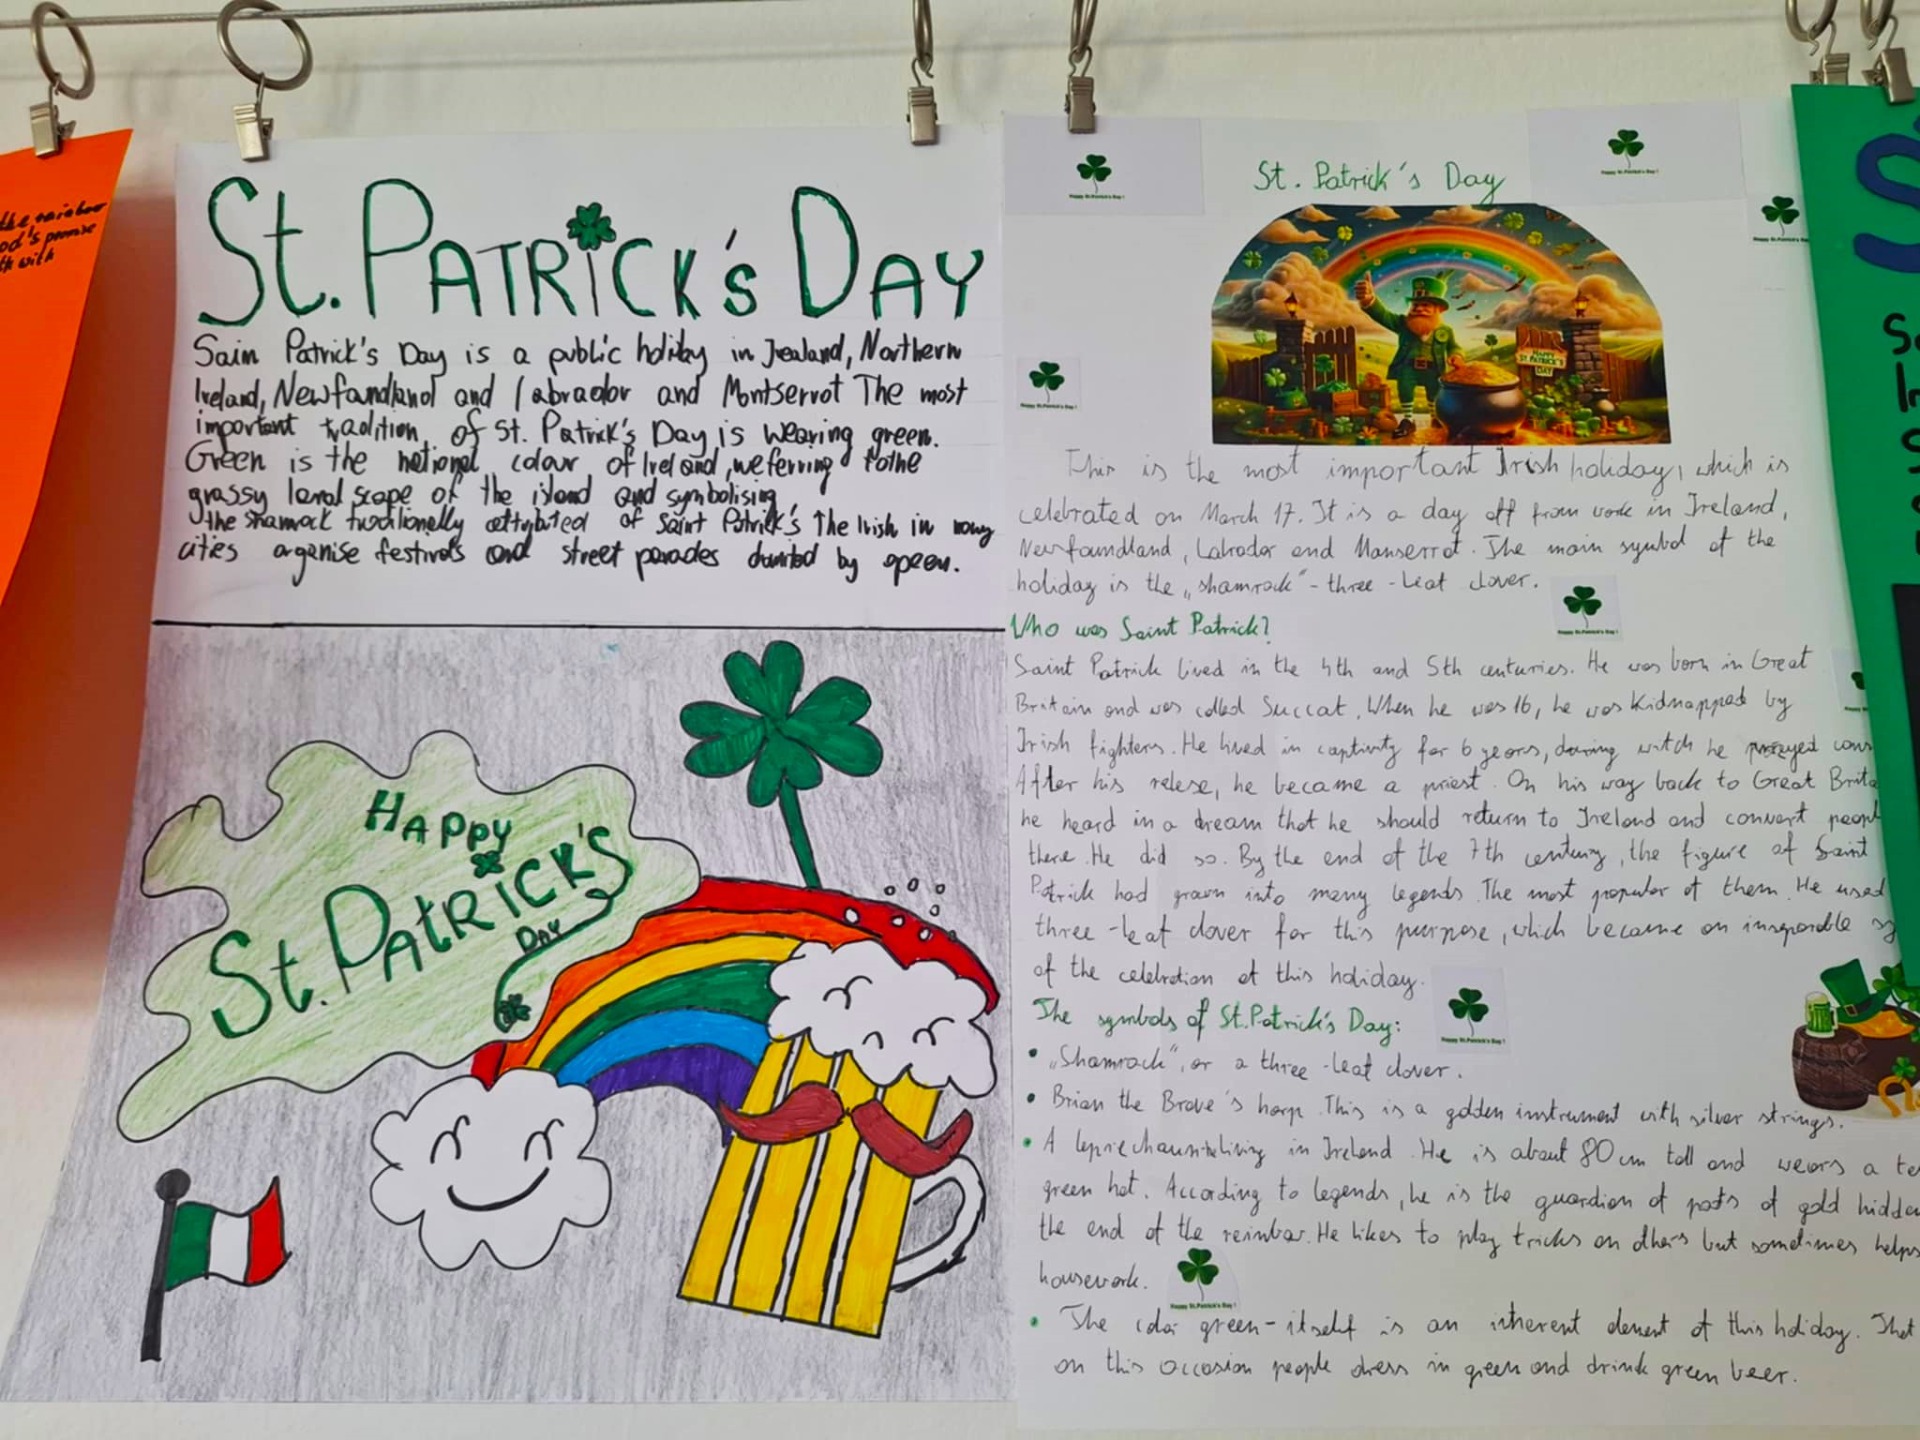 the rainbow
od's promise
th with
St. PATRICK's DAY
Sain Patrick's Day is a public holiday in Irealand, Northern
Ireland, Newfoundland and Labrador and Montserrot The most
important tradition of St. Patrick's Day is wearing green.
Green is the national colour of Ireland, weferring tothe
grassy landscape of the island and symbolising
the shamrock traditionelly attybuted of Saint Patrick's The Irish in many
cities organise festivals and street parades by
HAPPY
St. PATRICK'S
DAY
St. Patrick's Day
Happy St.Patrick's Day !
Happy St.Patrick's Day !
Happy St.Patrick's Day !
HAPPY
ST PATRICK'S
DAY
Happy St.Patrick's Day !
This is the most important Irish holiday, which is
celebrated on March 17. It is a day off from work in Ireland,
Newfoundland, Labrador and Manserrat. The main symbol of the
holiday is the „shamrock" - three - leat clover.
Happy St.Patrick's Day !
Who was Saint Patrick?
Saint Patrick lived in the 4th and 5th centuries. He was born in Great
Britain and was called Succat. When he was 16, he was Kidnapped by
Irish fighters. He lived in captivity for 6 years, during witch he prayed cons
After his relese, he became a priest. On his way back to Great Brita
he heard in a dream that he should return to Ireland and convert peopl
there. He did so. By the end of the 7th century, the figure of Saint
Patrick had grown into many legends. The most popular of them. He used
three - leaf clover for this purpose, which became an inseparable sy
of the celebration at this holiday.
The symbols of St. Patrick's Day:
Happy St.Patrick's Day !
• „Shamrock", or a three - leat clover.
• Brian the Brave's harp. This is a golden instrument with silver strings.
• A leprechaun living in Ireland. He is about 80 cm tall and wears a
green hat. According to legends, he is the guardian of pots of gold hidden
the end of the reinbow. He likes to play tricks on others but sometimes helps
housework.
Happy St.Patrick's Day !
• The color green - itself is an inherent element of this holiday. That
on this occasion people dress in green and drink green beer.
S